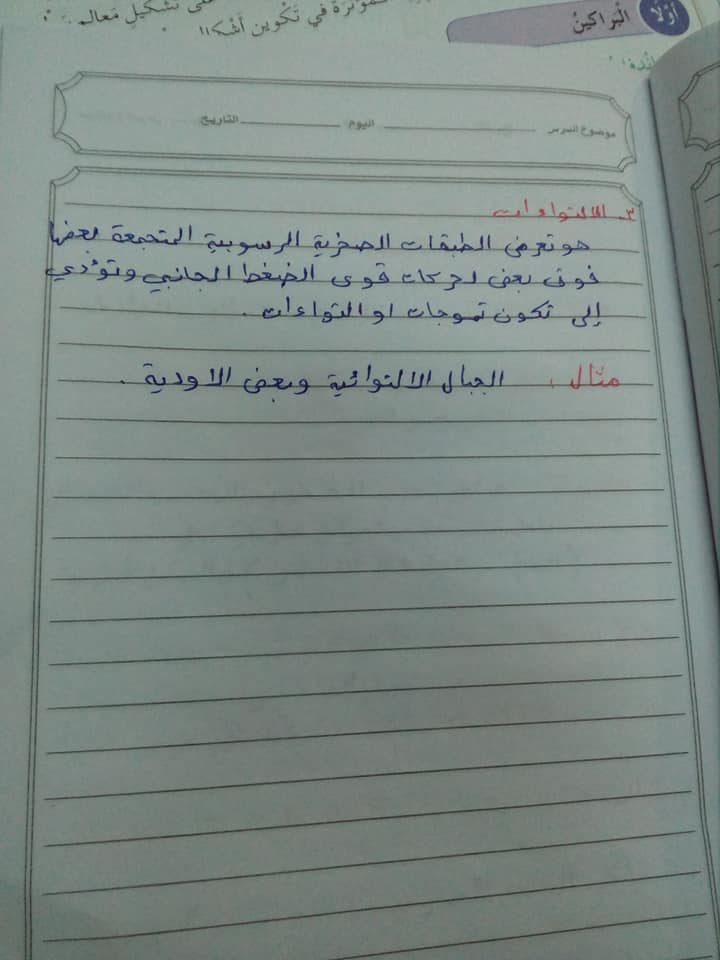 على تشكيل معالم
المؤثرة في تكوين
أولًا البراكين
موضوع الدرس اليوم التاريخ
٣- الالتواءات
هو تعرض الطبقات الصخرية الرسوبية المتجمعة بعضها
فوق بعض لحركات قوى الضغط الجانبي وتؤدي
إلى تكون تموجات او التواءات .
مثال : الجبال الالتوائية وبعض الاودية .